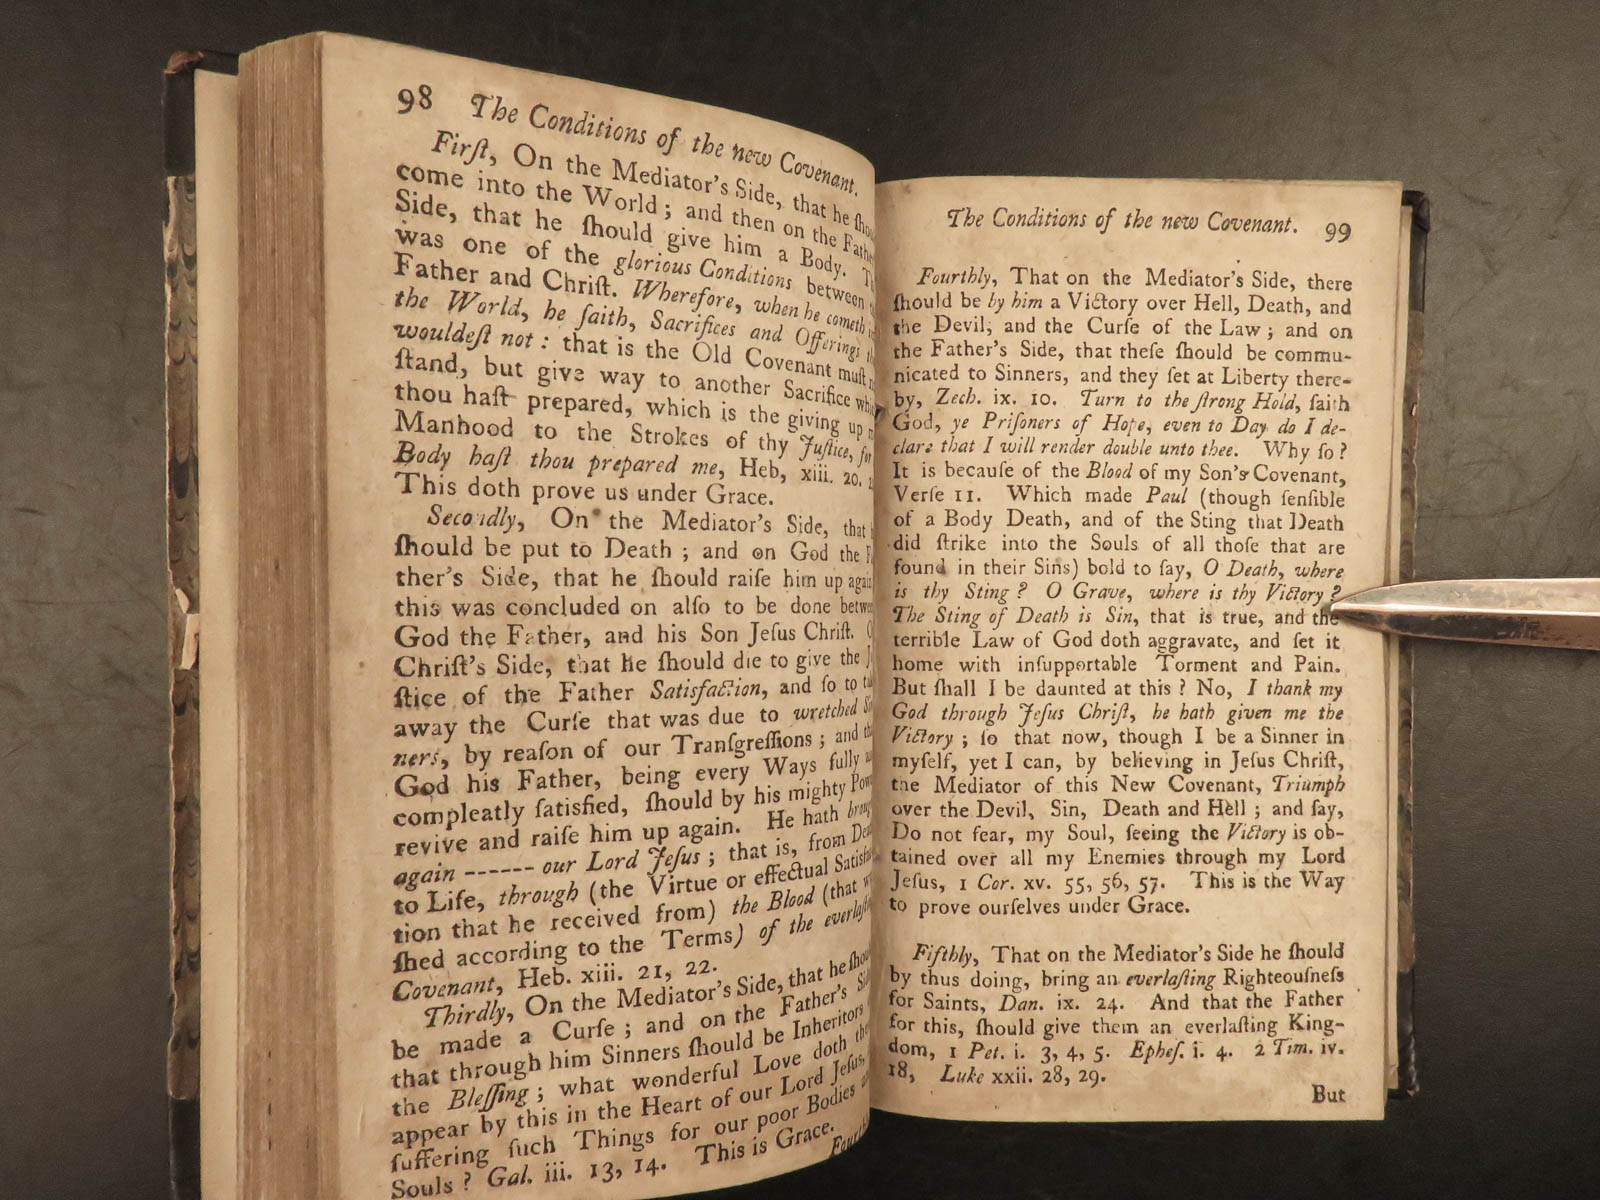 98 The Conditions of the new Covenant.
Firſt, On the Mediator's Side, that he
come into the World; and then on the
Side, that he ſhould give him a Body.
was one of the glorious Conditions between
Father and Chriſt. Wherefore, when he cometh
the World, he ſaith, Sacrifices and Offerings
wouldeſt not: that is the Old Covenant muſt
ſtand, but give way to another Sacrifice
thou haſt prepared, which is the giving up
Manhood to the Strokes of thy Juſtice,
Body haſt thou prepared me, Heb, xiii. 20.
This doth prove us under Grace.
Secondly, On the Mediator's Side, that
ſhould be put to Death; and on God the
ther's Side, that he ſhould raiſe him up
this was concluded on alſo to be done
God the Father, and his Son Jeſus Chriſt.
Chriſt's Side, that he ſhould die to give the
ſtice of the Father Satisfaction, and ſo to
away the Curſe that was due to wretched
ners, by reaſon of our Tranſgreſſions; and
God his Father, being every Ways fully
compleatly ſatisfied, ſhould by his mighty
revive and raiſe him up again. He hath
again ------ our Lord Jeſus; that is, from
to Life, through (the Virtue or effectual
tion that he received from) the Blood (that
ſhed according to the Terms) of the
Covenant, Heb. xiii. 21, 22.
Thirdly, On the Mediator's Side, that he
be made a Curſe; and on the Father's
that through him Sinners ſhould be Inheritors
the Bleſſing; what wonderful Love doth
appear by this in the Heart of our Lord Jeſus,
ſuffering ſuch Things for our poor Bodies
Souls? Gal. iii. 13, 14. This is Grace.
The Conditions of the new Covenant. 99
Fourthly, That on the Mediator's Side, there
ſhould be by him a Victory over Hell, Death, and
the Devil, and the Curſe of the Law; and on
the Father's Side, that theſe ſhould be commu-
nicated to Sinners, and they ſet at Liberty there-
by, Zech. ix. 10. Turn to the ſtrong Hold, ſaith
God, ye Priſoners of Hope, even to Day do I de-
clare that I will render double unto thee. Why ſo?
It is becauſe of the Blood of my Son's Covenant,
Verſe 11. Which made Paul (though ſenſible
of a Body Death, and of the Sting that Death
did ſtrike into the Souls of all thoſe that are
found in their Sins) bold to ſay, O Death, where
is thy Sting? O Grave, where is thy Victory?
The Sting of Death is Sin, that is true, and the
terrible Law of God doth aggravate, and ſet it
home with inſupportable Torment and Pain.
But ſhall I be daunted at this? No, I thank my
God through Jeſus Chriſt, he hath given me the
Victory; ſo that now, though I be a Sinner in
myſelf, yet I can, by believing in Jeſus Chriſt,
the Mediator of this New Covenant, Triumph
over the Devil, Sin, Death and Hell; and ſay,
Do not fear, my Soul, ſeeing the Victory is ob-
tained over all my Enemies through my Lord
Jeſus, 1 Cor. xv. 55, 56, 57. This is the Way
to prove ourſelves under Grace.
Fifthly, That on the Mediator's Side he ſhould
by thus doing, bring an everlaſting Righteouſneſs
for Saints, Dan. ix. 24. And that the Father
for this, ſhould give them an everlaſting King-
dom, 1 Pet. i. 3, 4, 5. Epheſ. i. 4. 2 Tim. iv.
18, Luke xxii. 28, 29.
But